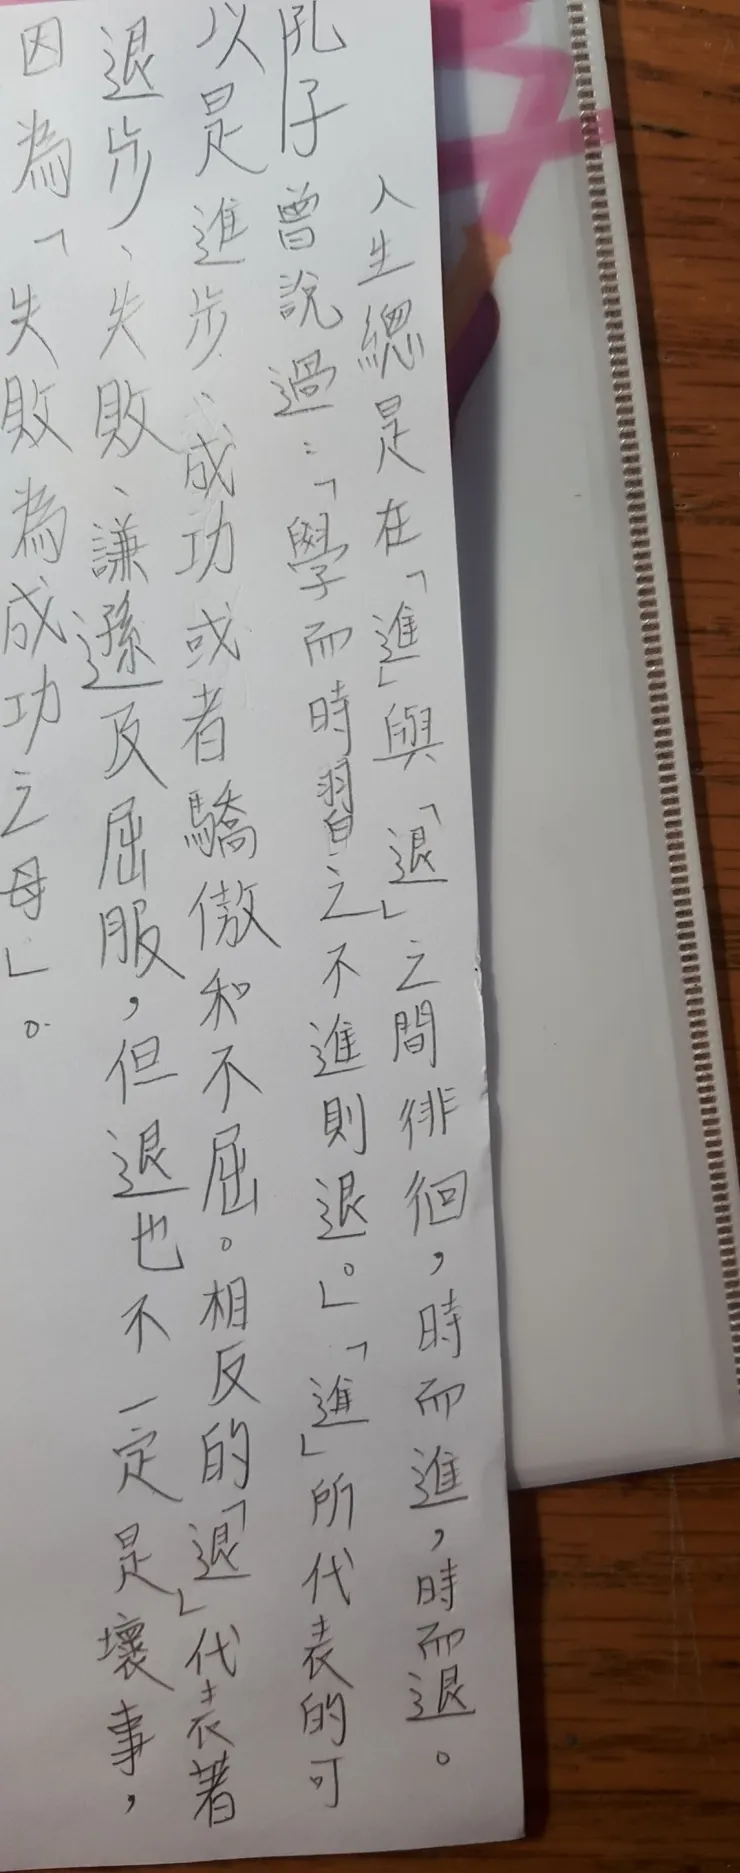 人生總是在「進」與「退」之間徘徊，時而進，時而退。
孔子曾說過：「學而時習之不進則退。」「進」所代表的可
以是進步、成功或者驕傲和不屈。相反的「退」代表著
退步、失敗、謙遜及屈服，但退也不一定是壞事，
因為「失敗為成功之母」。